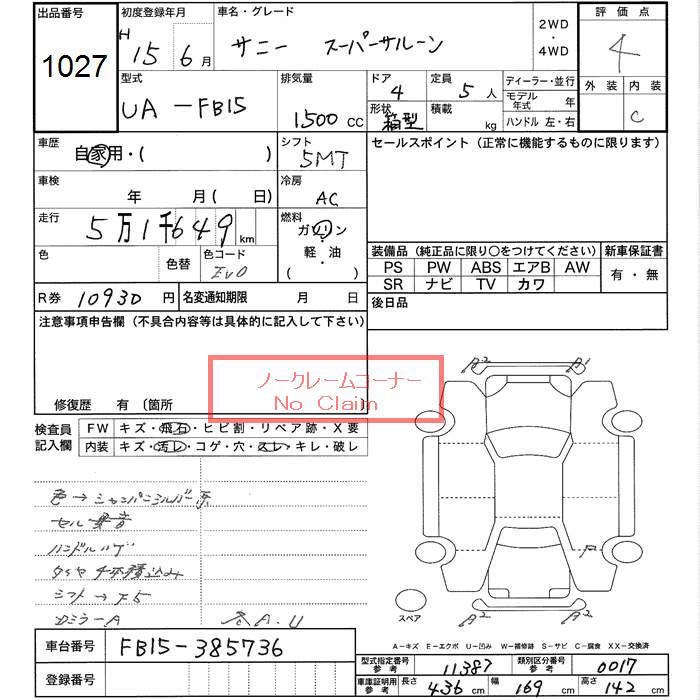 出品番号
1027
初度登録年月
H 15 6月
車名・グレード
サニー スーパーサルーン
2WD
・
4WD
評価点
4
外装 内装
C
型式
UA-FB15
排気量
1500 CC
ドア
4
形状
箱型
定員
5人
積載
kg
ディーラー・並行
モデル年式 年
ハンドル 左・右
車歴
自家用・( )
シフト
5MT
セールスポイント(正常に機能するものに限ります)
車検
年 月( 日)
冷房
AC
走行
5万1千649 km
燃料
ガソリン
・
軽・油
( )
色
色替
色コード
EV0
装備品(純正品に限り○をつけてください)
PS PW ABS エアB AW
SR ナビ TV カワ
新車保証書
有・無
R券 10930円
名変通知期限 月 日
後日品
注意事項申告欄(不具合内容等は具体的に記入して下さい)
ノークレームコーナー
No Claim
修復歴 有 〔箇所
検査員記入欄
FW キズ・飛石・ヒビ割・リペア跡・X要
内装 キズ・汚レ・コゲ・穴・スレ・キレ・破レ
色→シャンパンシルバー系
セル異音
ハンドルハゲ
タイヤ4本積込み
シフト→F5
DミラーA
各A.U
A2 A1
P
A2 A2
スペア
A-キズ E-エクボ U-凹み W-補修跡 S-サビ C-腐食 XX-交換済
車台番号 FB15-385736
登録番号
型式指定番号参考 11387
類別区分番号参考 0017
車庫証明用参考 長さ 436 cm 幅 169 cm 高さ 142 cm